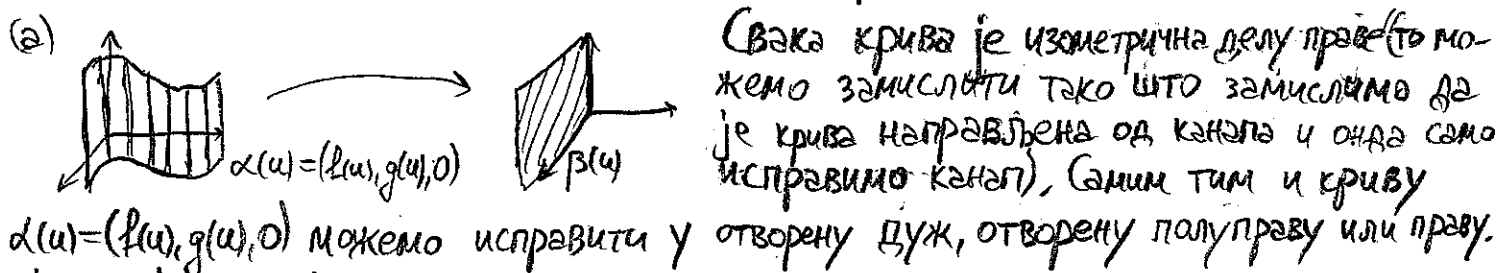 (а) Свака крива је изометрична делу праве (то мо-
жемо замислити тако што замислимо да
је крива направљена од канапа и онда само
α(u)=(f(u),g(u),0) β(u) исправимо канап). Самим тим и криву
α(u)=(f(u),g(u),0) можемо исправити у отворену дуж, отворену полуправу или праву.